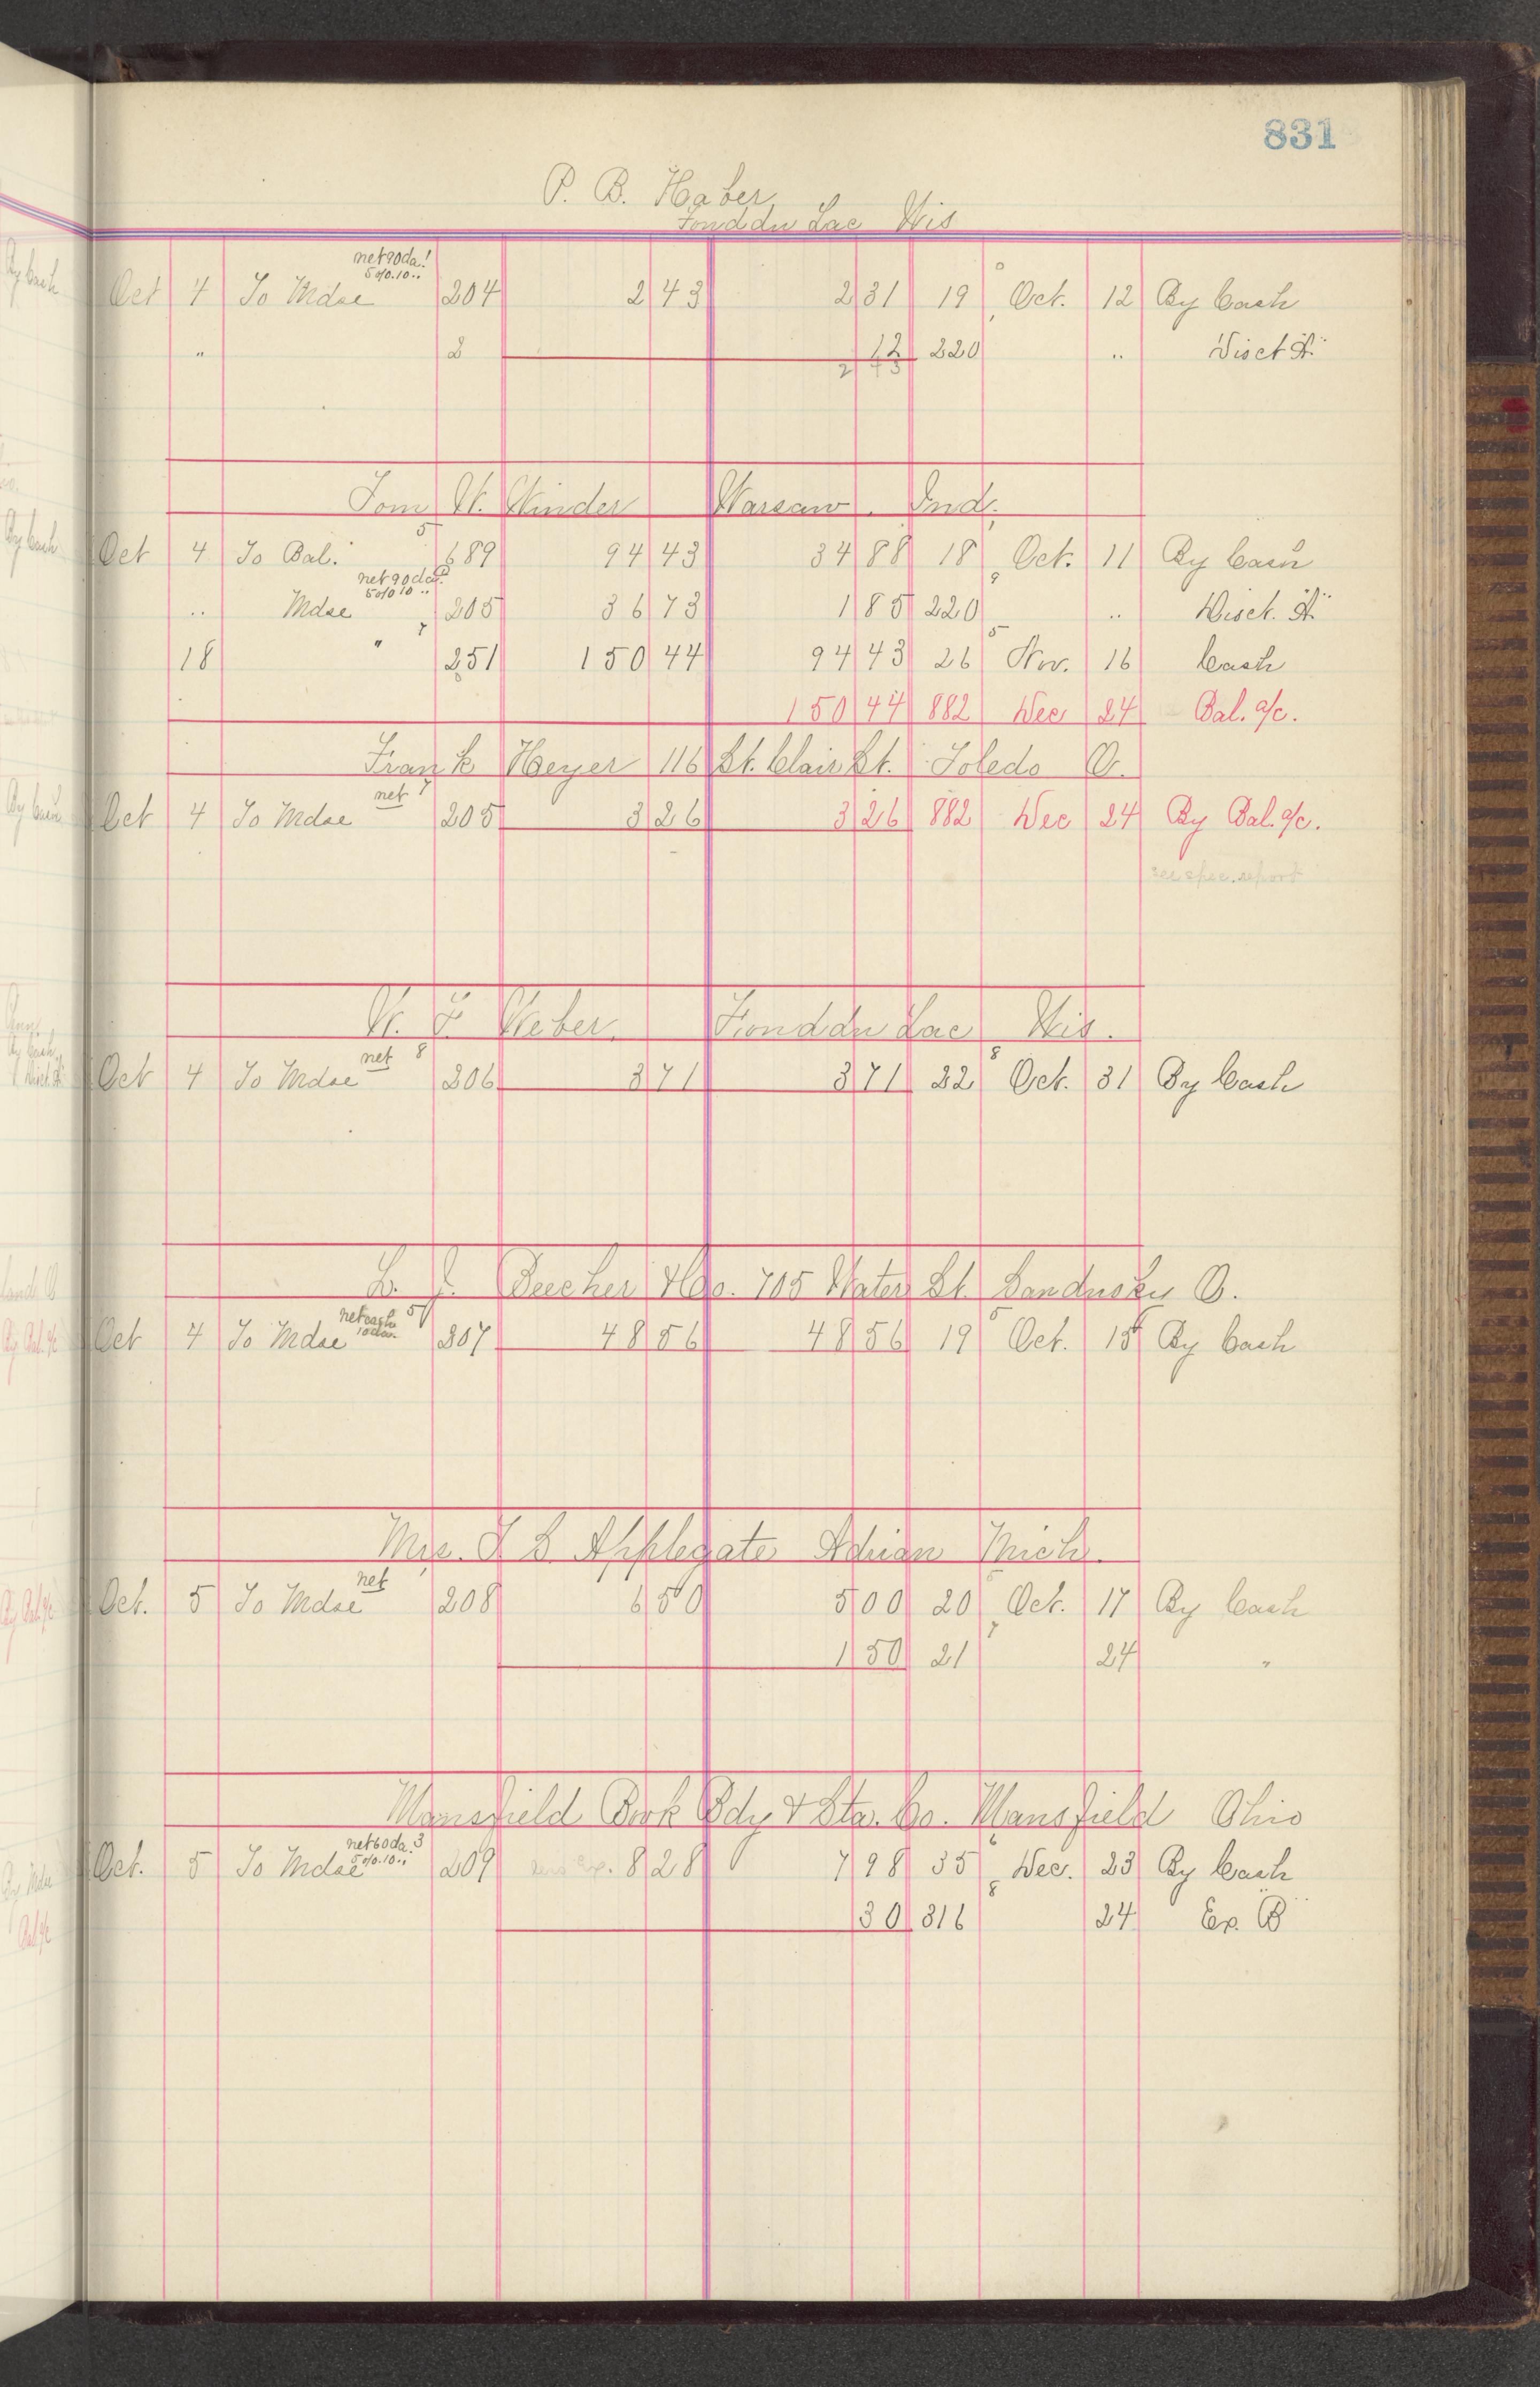 831
P. B. Haber
Fond du Lac Wis
net 90 da. 1
5 o/o 10 ..
Oct 4 To Mdse 204 2 43 2 31 19 Oct. 12 By Cash
" 2 12 220 .. Disct "A"
2 43
Tom W. Winder Warsaw. Ind.
Oct 4 To Bal. 5 689 94 43 34 88 18 Oct. 11 By Cash
net 90 da. 8
5 o/o 10 ..
.. Mdse 205 36 73 1 85 220 .. Disct. "A"
18 " 7 251 150 44 94 43 26 Nov. 16 Cash
150 44 882 Dec 24 Bal. a/c.
Frank Heyer 116 St. Clair St. Toledo O.
net 7
Oct 4 To Mdse 205 3 26 3 26 882 Dec 24 By Bal. a/c.
see spec. report
W. F. Weber Fond du Lac Wis.
net 8
Oct 4 To Mdse 206 3 71 3 71 22 Oct. 31 By Cash
L. J. Beecher & Co. 705 Water St. Sandusky O.
net cash 5
10 da.
Oct 4 To Mdse 207 48 56 48 56 19 Oct. 15 By Cash
Mrs. I S Applegate Adrian Mich.
net
Oct. 5 To Mdse 208 6 50 5 00 20 Oct. 17 By Cash
1 50 21 24 "
Mansfield Book Bdy & Sta. Co. Mansfield Ohio
net 60 da. 3
5 o/o 10 ..
Oct. 5 To Mdse 209 8 28 7 98 35 Dec. 23 By Cash
30 316 24 Ex. "B"